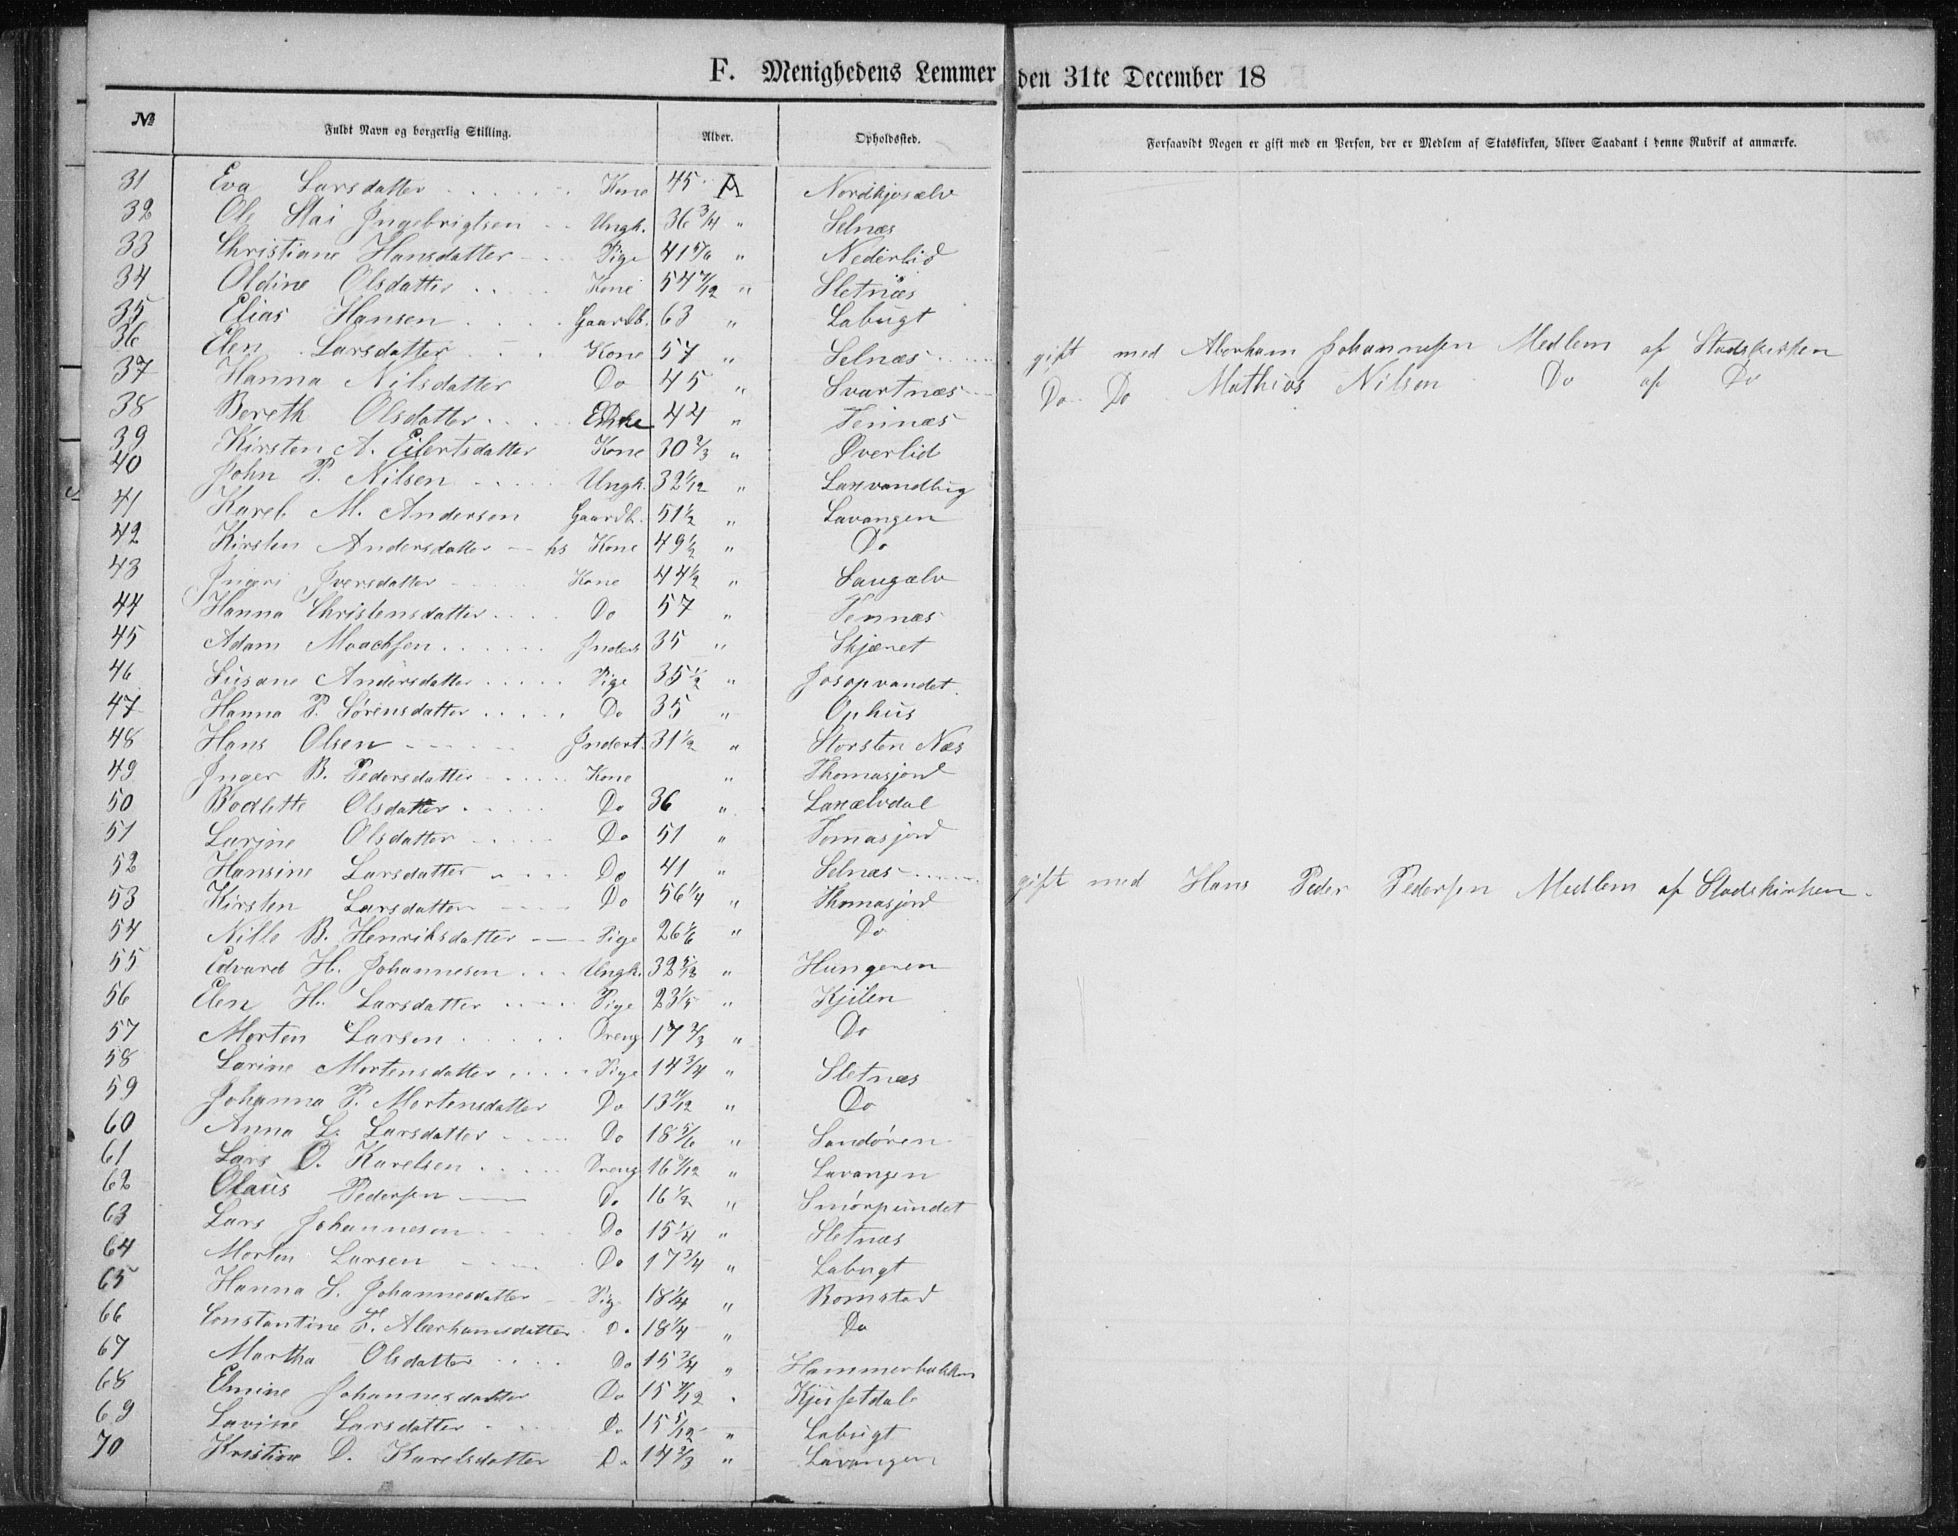 F. Menighedens Lemmer den 31te December 18
№ Fuldt Navn og borgerlig Stilling. Alder. Opholdssted. Forsaavidt Nogen er gift med en Person, der er Medlem af Statskirken, bliver Saadant i denne Rubrik at anmærke.
31 Eva Larsdatter Kone 45 A Nordkjosælv
32 Ole Stai Ingebrigtsen Ungk. 36 3/4 " Selnæs
33 Christiane Hansdatter Pige 41 5/6 " Nederlid
34 Oldine Olsdatter Kone 54 7/12 " Sletnæs
35 Elias Hansen Gaardb. 63 " Labugt
36 Elen Larsdatter Kone 57 " Selnæs gift med Aberham Johannesen Medlem af Stadskirken
37 Hanna Nilsdatter Do 45 " Svartnæs Do Do Mathias Nilsen Do af Do
38 Bereth Olsdatter Enke 44 " Tennæs
39 Kirsten A. Eilertsdatter Kone 30 2/3 " Øverlid
40 John P. Nilsen Ungk. 32 1/12 " Laxvandbug
41 Karel M. Andersen Gaardb. 51 1/2 " Lavangen
42 Kirsten Andersdatter hs Kone 49 1/2 " Do
43 Ingeri Iversdatter Kone 44 1/2 " Saugælv
44 Hanna Christensdatter Do 57 " Tennæs
45 Adam Moachsen Inders 35 " Skjæret
46 Susane Andersdatter Pige 35 1/2 " Josopvandet
47 Hanna P. Sørensdatter Do 35 " Ophus
48 Hans Olsen Indert. 31 1/2 " Storsten Næs
49 Inger B. Pedersdatter Kone " Thomasjord
50 Bodlette Olsdatter Do 36 " Laxælvdal
51 Larine Olsdatter Do 51 " Tomasjord
52 Hansine Larsdatter Do 41 " Selnæs gift med Hans Peder Pedersen Medlem af Stadskirken
53 Kirsten Larsdatter Do 56 1/4 " Thomasjord
54 Nille B. Henriksdatter Pige 26 1/6 " Do
55 Edvard H. Johannesen Ungk. 32 5/12 " Hungeren
56 Elen H. Larsdatter Pige 23 1/5 " Kjilen
57 Morten Larsen Dreng 17 2/3 " Do
58 Larine Mortensdatter Pige 14 3/4 " Sletnæs
59 Johanna P. Mortensdatter Do 13 1/12 " Do
60 Anna L. Larsdatter Do 18 5/6 " Sandøren
61 Lars O. Karelsen Dreng 16 1/12 " Lavangen
62 Olaus Pedersen Do 16 1/2 " Smørpundet
63 Lars Johannesen Do 15 1/4 " Sletnæs
64 Morten Larsen Do 17 3/4 " Labugt
65 Hanna L. Johannesdatter Pig 18 1/4 " Bomstad
66 Constantine F. Aberhamsdatter Do 18 1/4 " Do
67 Martha Olsdatter Do 15 3/4 " Hammerbakken
68 Elmine Johannesdatter Do 15 7/12 " Kjussetdale
69 Lavine Larsdatter Do 15 5/12 " Labugt
70 Kristine D. Karelsdatter Do 14 2/3 " Lavangen